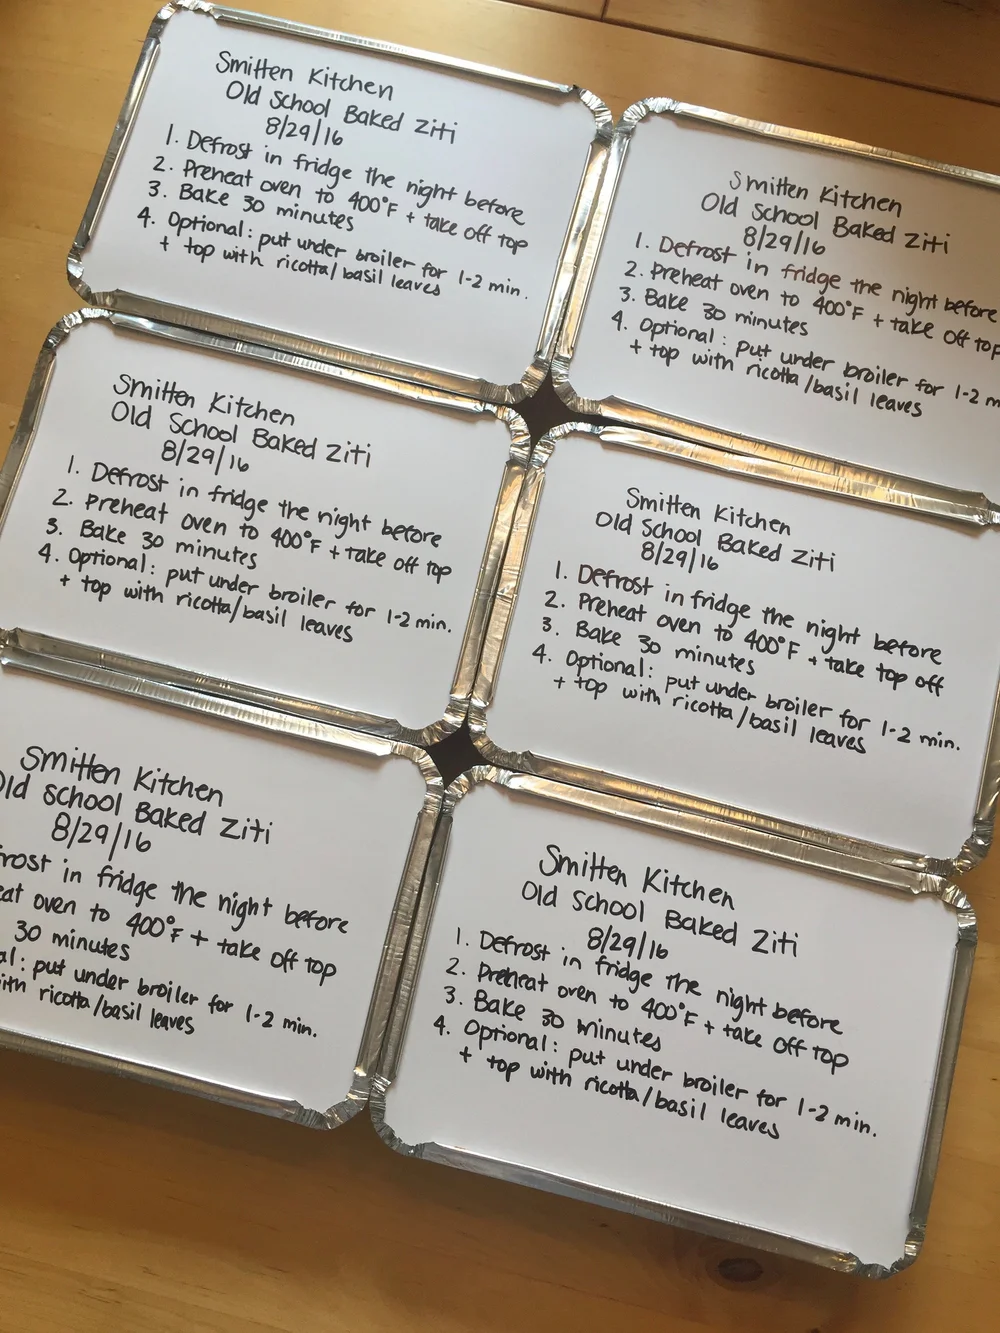 Smitten Kitchen
Old School Baked Ziti
8/29/16
1. Defrost in fridge the night before
2. Preheat oven to 400°F + take off top
3. Bake 30 minutes
4. Optional: put under broiler for 1-2 min.
+ top with ricotta/basil leaves
Smitten Kitchen
Old School Baked Ziti
8/29/16
1. Defrost in fridge the night before
2. Preheat oven to 400°F + take off top
3. Bake 30 minutes
4. Optional: put under broiler for 1-2 m
+ top with ricotta/basil leaves
Smitten Kitchen
Old School Baked Ziti
8/29/16
1. Defrost in fridge the night before
2. Preheat oven to 400°F + take off top
3. Bake 30 minutes
4. Optional: put under broiler for 1-2 min.
+ top with ricotta/basil leaves
Smitten Kitchen
Old School Baked Ziti
8/29/16
1. Defrost in fridge the night before
2. Preheat oven to 400°F + take top off
3. Bake 30 minutes
4. Optional: put under broiler for 1-2 min.
+ top with ricotta/basil leaves
Smitten Kitchen
ld School Baked Ziti
8/29/16
rost in fridge the night before
eat oven to 400°F + take off top
30 minutes
al: put under broiler for 1-2 min.
ith ricotta/basil leaves
Smitten Kitchen
Old School Baked Ziti
8/29/16
1. Defrost in fridge the night before
2. Preheat oven to 400°F + take off top
3. Bake 30 minutes
4. Optional: put under broiler for 1-2 min.
+ top with ricotta/basil leaves